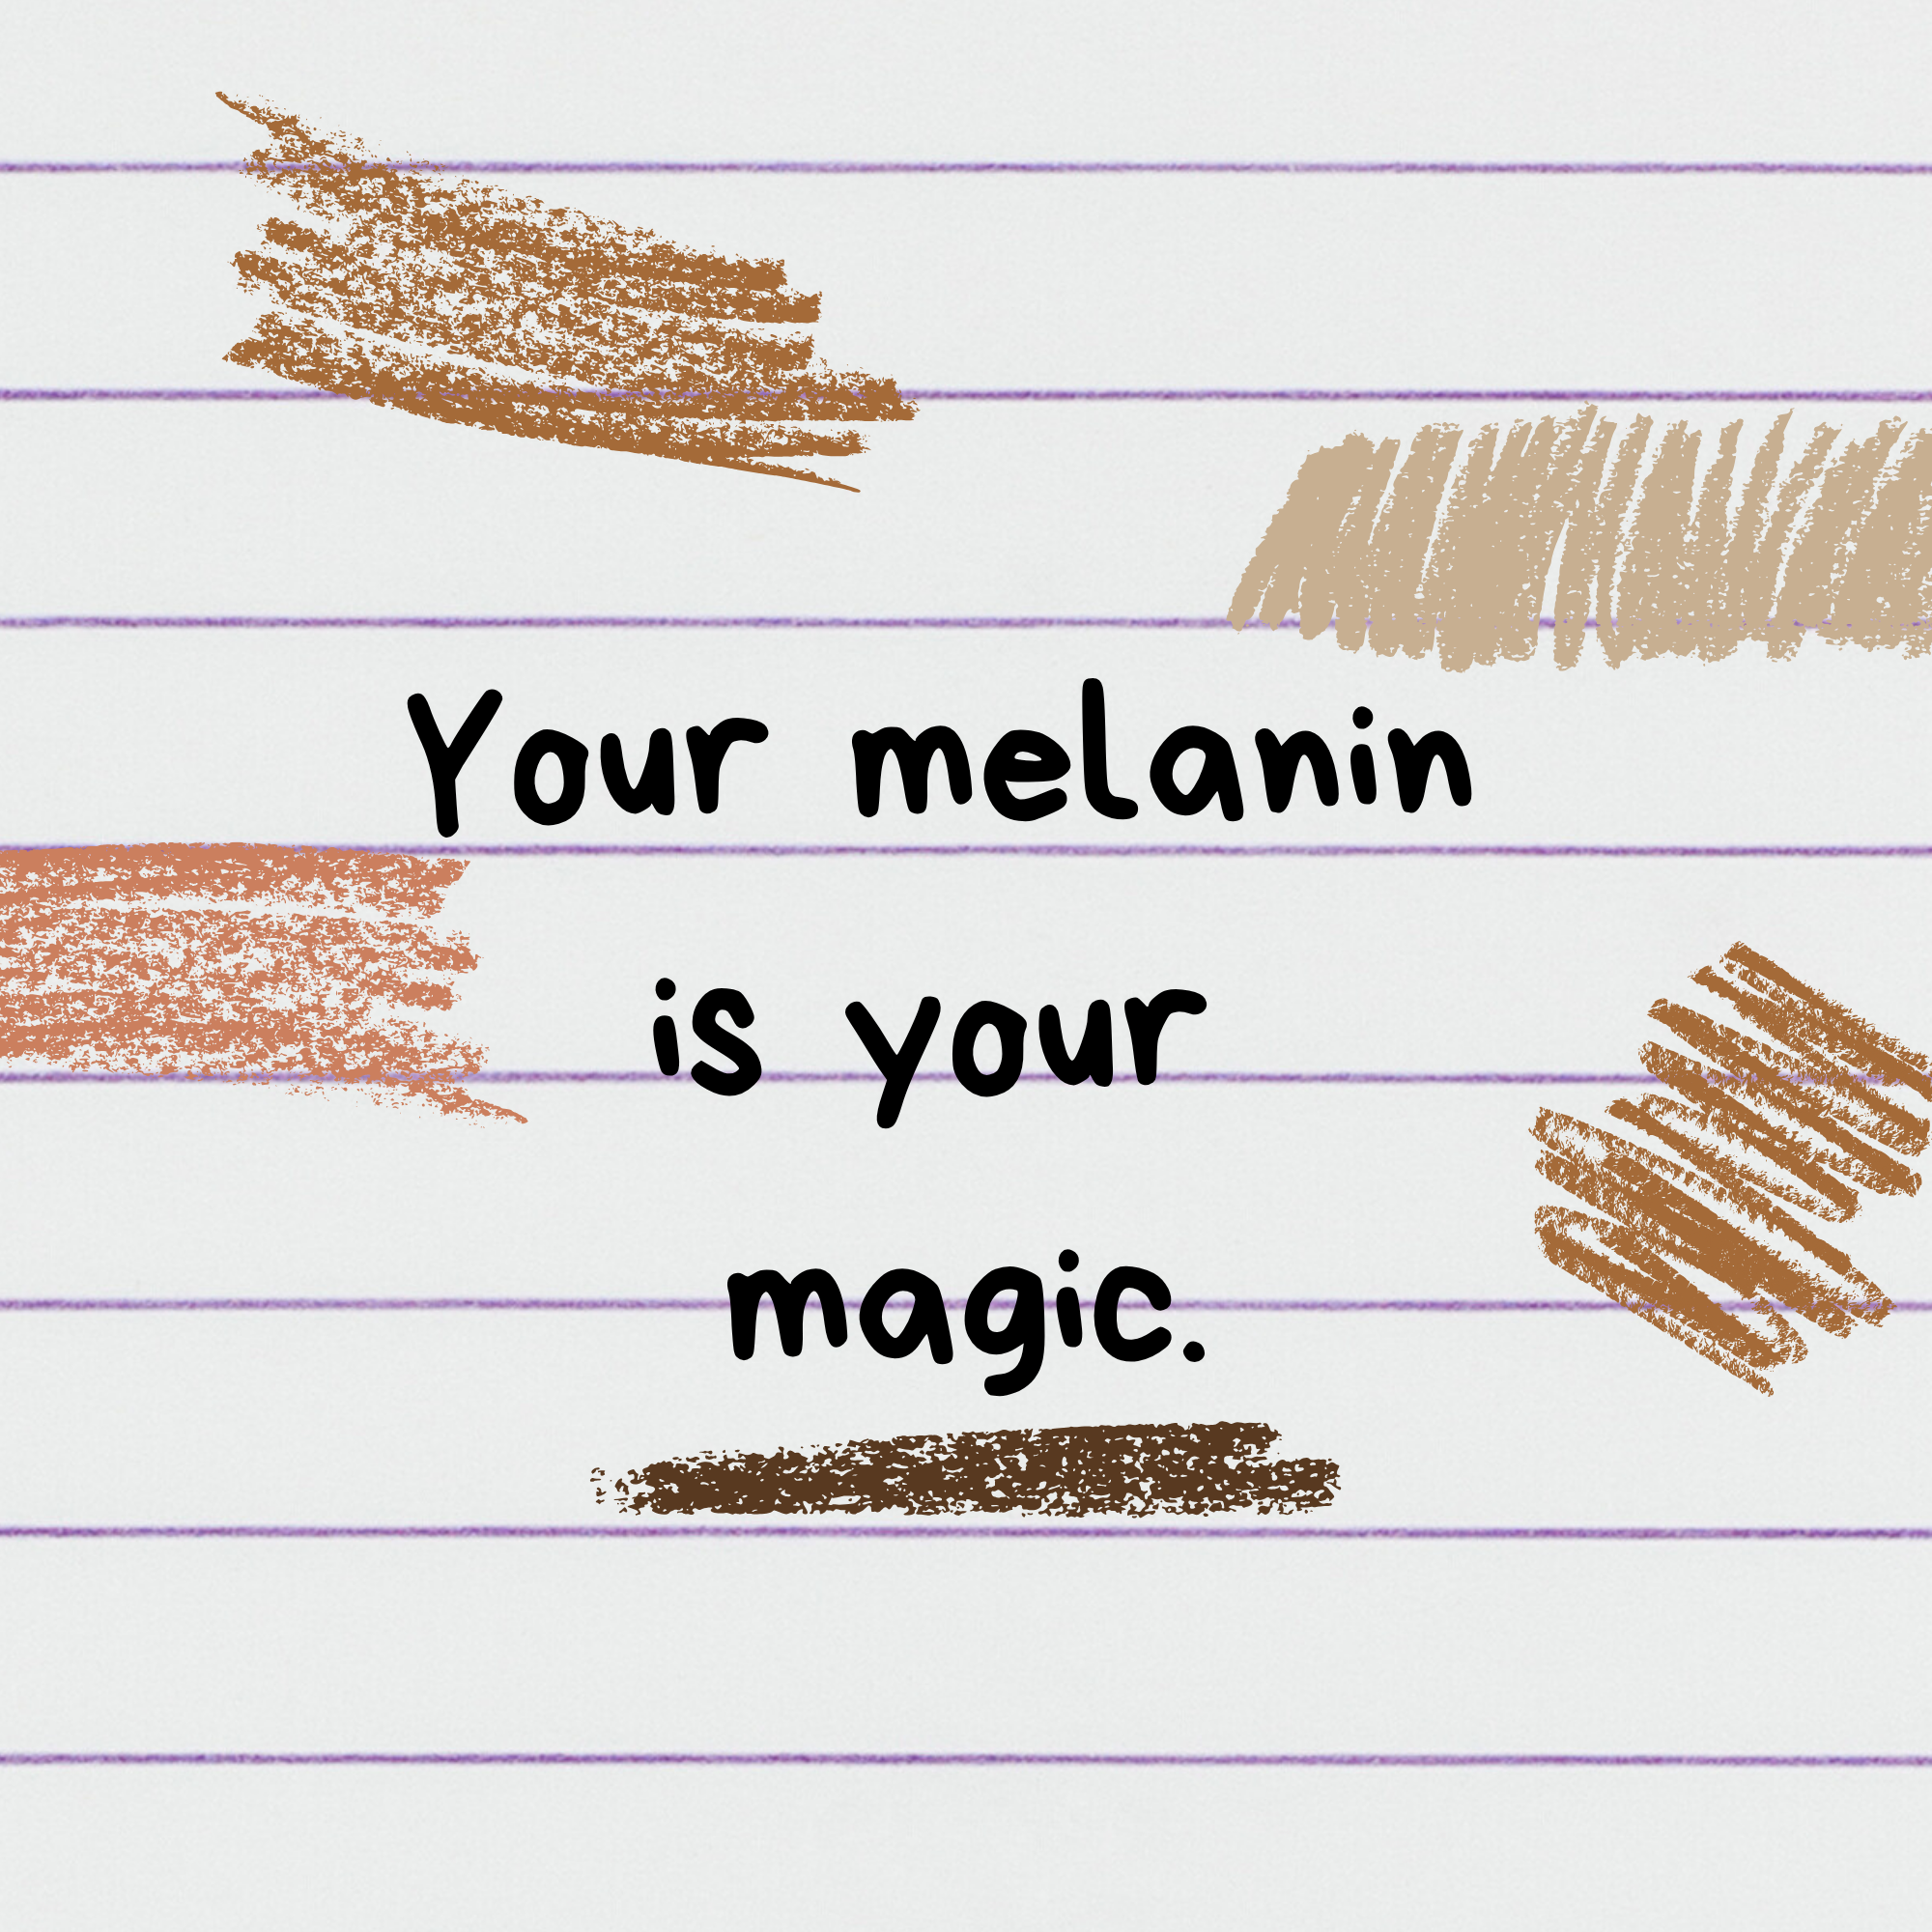 Your melanin
is your
magic.